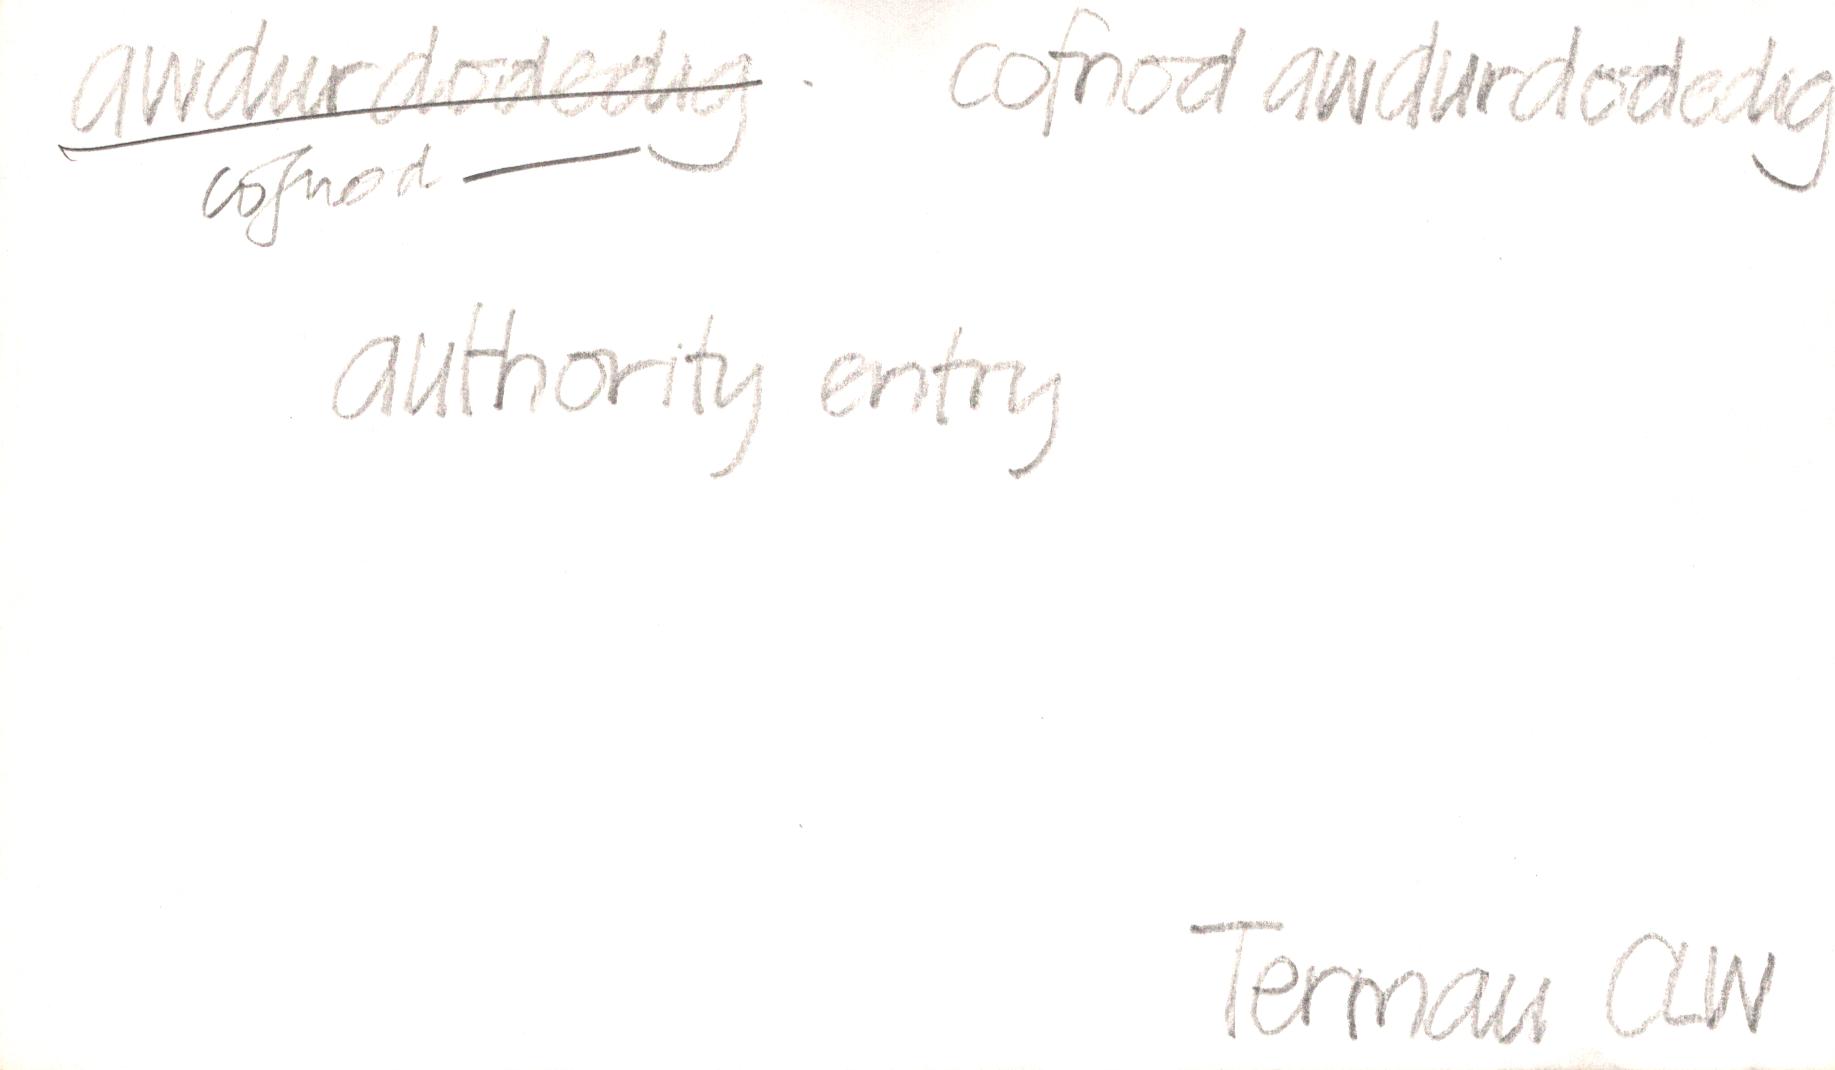 awdurdodedig. cofnod awdurdodedig
cofnod —
authority entry
Termau CLW